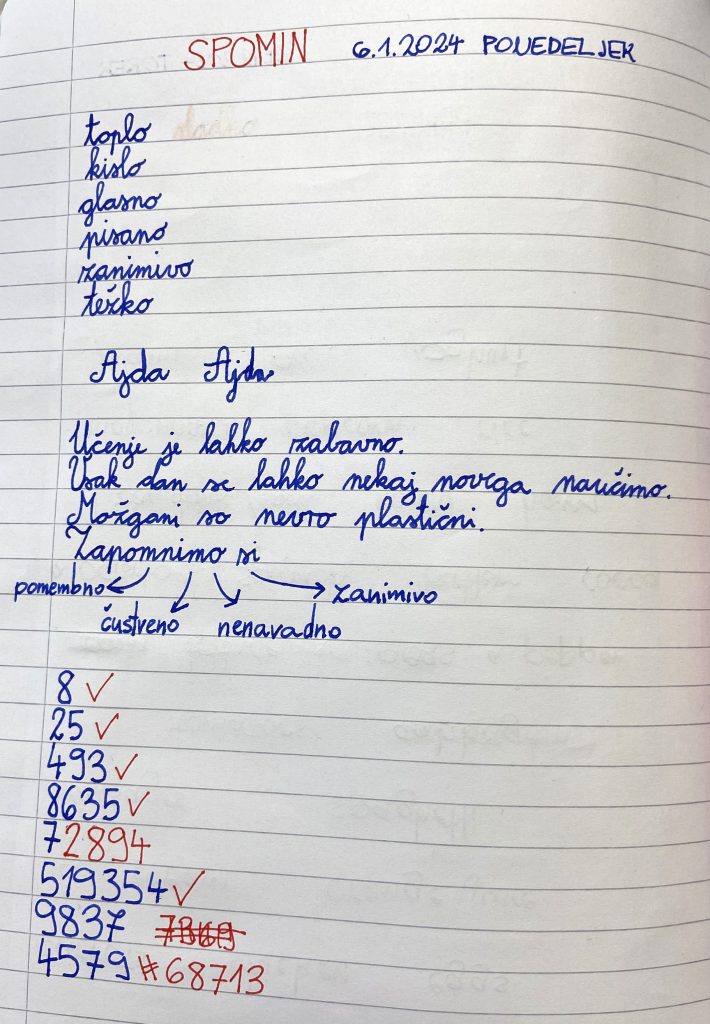 SPOMIN 6.1.2024 PONEDELJEK
toplo
kislo
glasno
pisano
zanimivo
težko
Ajda Ajda
Učenje je lahko zabavno.
Vsak dan se lahko nekaj novega naučimo.
Možgani so nevro plastični.
Zapomnimo si
pomembno zanimivo
čustveno nenavadno
8 ✓
25 ✓
493 ✓
8635 ✓
72894
519354 ✓
9837
4579 # 68713